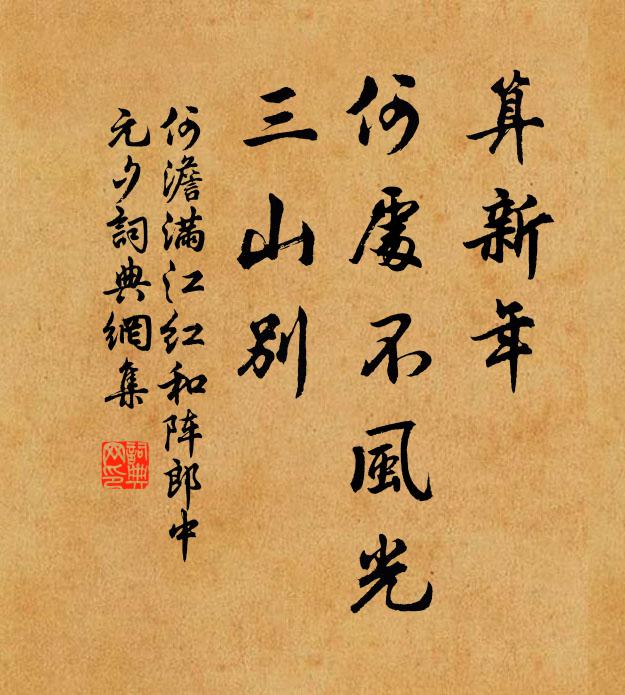 算新年
何處不風光
三山別
何澹满江红和阵郎中
元夕詞典網集
詞典
网印